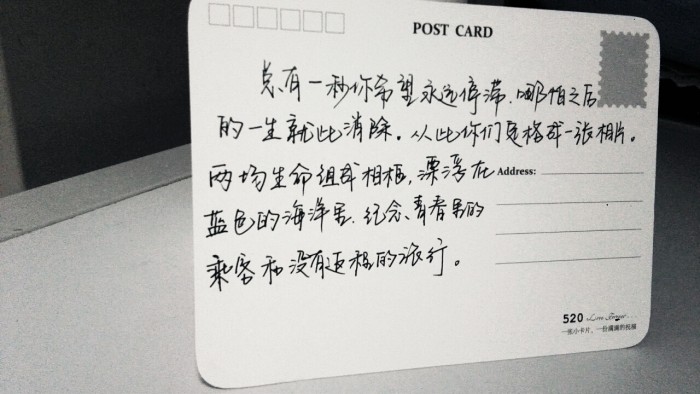 POST CARD
总有一秒你希望永远停滞,哪怕之后
的一生就此消除。从此你们定格成一张相片。
两场生命组成相框,漂浮在
Address:
蓝色的海洋里.纪念、青春里的
乘客和没有返程的旅行。
520 Love Forever
一张小卡片,一份满满的祝福